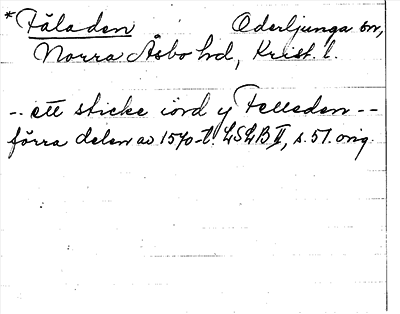 *Fäladen Oderljunga sn,
Norra Åsbo hd, Krist. l.
-- ett sticke iörd y Felleden --
förra delen av 1570-t. LSLB II, s. 51. orig.